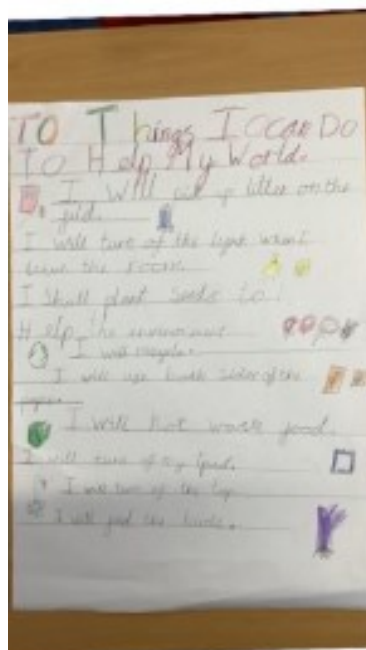 TO Things I can Do
To Help My World.
I will litter on the
I will turn of the light when I
leave the room.
I shall plant seeds to
Help the environment
I will recycle.
I will use both sides of the
I will not waste food.
I will turn of my Ipad.
I will turn of the tap
I will feed the birds.